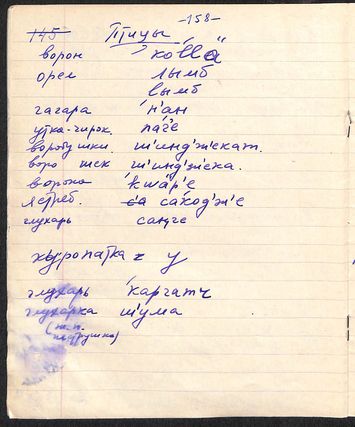 -158-
145 Птицы
ворон ко́ллӓ
орел лымб
вымб
гагара н'ан
утка-чирок. паг'е
воробушки. ш'индж'екат.
воро шек ш'индж'ека.
ворона кшар'е
ястреб. са сакод'ж'е
глухарь саңге
куропатка у
глухарь каргатч
глухарка ш'ума